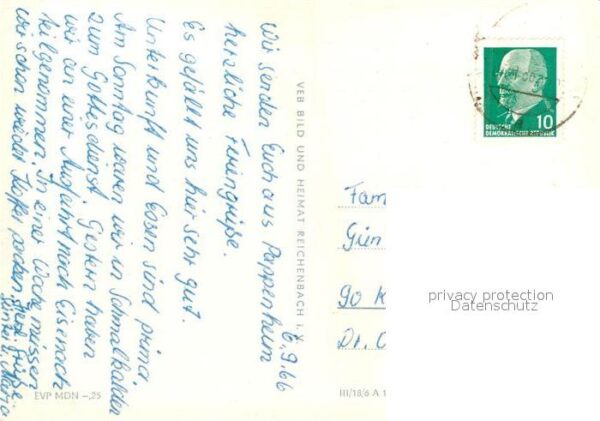 16.9.66
Wir senden Euch aus Pappenheim
herzliche Feriengrüße.
Es gefällt uns hier sehr gut.
Unterkunft und Essen sind prima.
Am Sonntag waren wir in Schmalkalden
zum Gottesdienst. Gestern haben
wir an einer Ausfahrt nach Eisenach
teilgenommen. In einer Woche müssen
wir schon wieder Koffer packen.
Grüße
Maria
VEB BILD UND HEIMAT REICHENBACH i. V.
EVP MDN -,25
III/18/6 A 1
10
DEUTSCHE
DEMOKRATISCHE REPUBLIK
Fam
Gün
90 K
Dr. O
privacy protection
Datenschutz